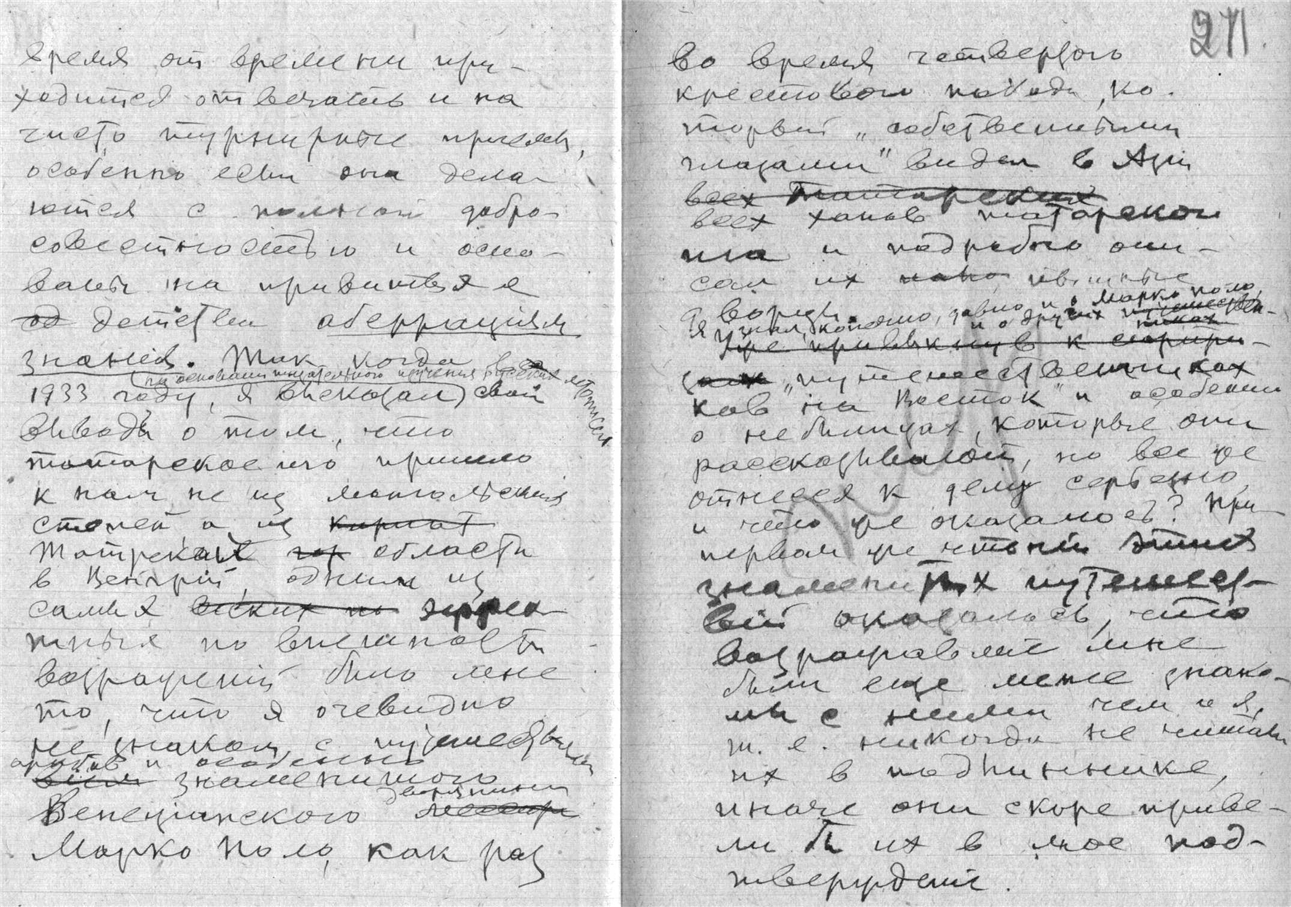 время от времени при-
ходится отвечать и на
чисто турнирные
особенно если они дела
ются с полной добро-
совестностью и осно-
ваны на привитых
с детства аберрациях
знаний. Так когда в
на основании внимательного изучения русских летописей
1933 году, я высказал свои
выводы о том, что
татарское иго пришло
к нам не из монгольских
степей а из
Татрской области
в Венгрии, одним из
самых веских по эффек
тных по внешности
возражений было мне
то, что я очевидно
не знаком с путешествиями
арабов и особенно
знаменитого
дворянина
Венецианского
Марко Поло, как раз
271.
во время четвертого
крестового похода, ко-
торый „собственными
глазами" видел в Азии
всех татарских
всех ханов татарского
ига и подробно опи-
сал их пышные
дворцы.
Я узнал, конечно, давно и о Марко Поло,
и о других путешествен-
никах
Уже привыкнув к сюрпри-
зам „путешественников
на Восток" и особенно
о небылицах, которые они
рассказывают, но все же
отнесся к делу серьезно,
и что же оказалось? При
первом же чтении этих
знаменитых путешес-
вий оказалось, что
возражавшие мне
были еще менее знако-
мы с ними чем и я,
т. е. никогда не читали
их в подлиннике,
иначе они скоре приве-
ли бы их в мое под-
тверждение.